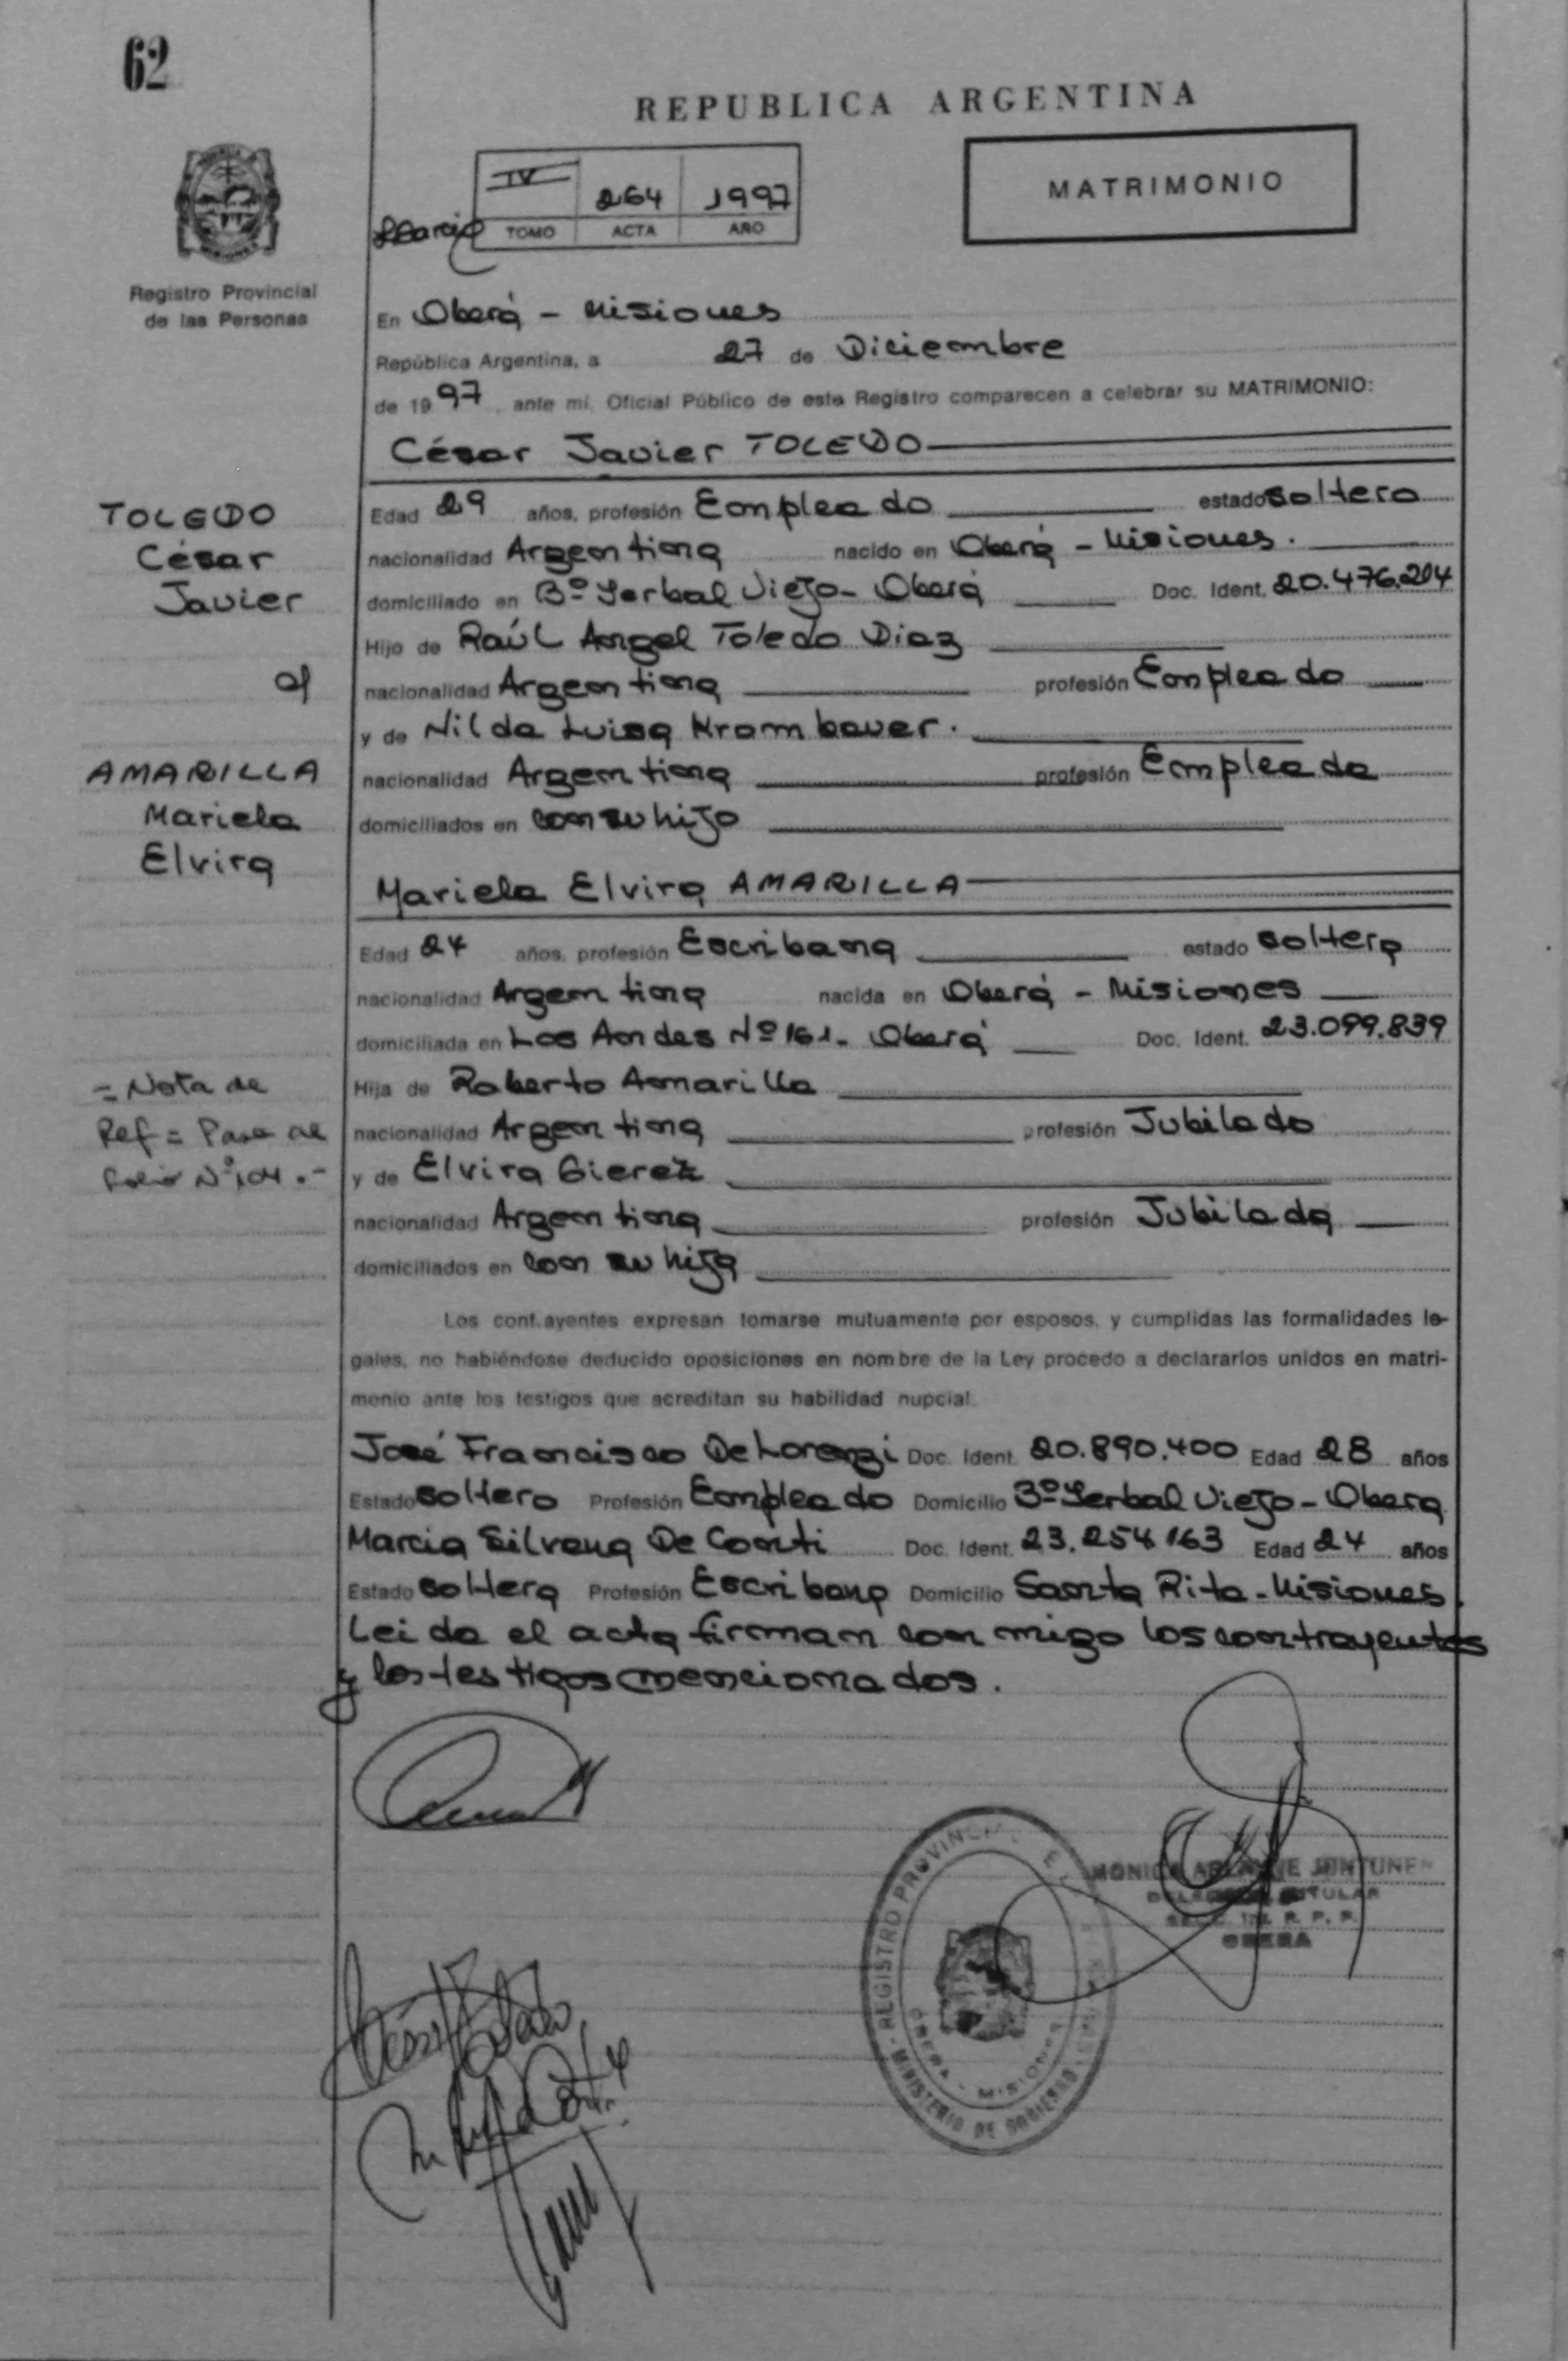 62
REPUBLICA ARGENTINA
IV 264 1997
TOMO ACTA AÑO
MATRIMONIO
Registro Provincial
de las Personas
En Oberá - Misiones
República Argentina, a 27 de Diciembre
de 1997, ante mí, Oficial Público de este Registro comparecen a celebrar su MATRIMONIO:
César Javier TOLEDO
TOLEDO
César
Javier
Edad 29 años, profesión Empleado estado soltero
nacionalidad Argentina nacido en Oberá - Misiones.
domiciliado en Bº Yerbal Viejo - Oberá Doc. Ident. 20.476.204
Hijo de Raúl Angel Toledo Diaz
nacionalidad Argentina profesión Empleado
y de Nilda Luisa Krombauer.
AMARILLA
Mariela
Elvira
nacionalidad Argentina profesión Empleada
domiciliados en con su hijo
Mariela Elvira AMARILLA
Edad 24 años, profesión Escribana estado soltera
nacionalidad Argentina nacida en Oberá - Misiones
domiciliada en Los Andes Nº 161 - Oberá Doc. Ident. 23.099.839
= Nota de
Ref = Pase al
folio Nº 104.-
Hija de Roberto Amarilla
nacionalidad Argentina profesión Jubilado
y de Elvira Gierez
nacionalidad Argentina profesión Jubilada
domiciliados en con su hija
Los cont.ayentes expresan tomarse mutuamente por esposos, y cumplidas las formalidades le-
gales, no habiéndose deducido oposiciones en nombre de la Ley procedo a declararlos unidos en matri-
monio ante los testigos que acreditan su habilidad nupcial.
José Francisco De Lorenzi Doc. Ident. 20.890.400 Edad 28 años
Estado soltero Profesión Empleado Domicilio Bº Yerbal Viejo - Oberá
Marcia Silvana De Conti Doc. Ident. 23.254.163 Edad 24 años
Estado soltera Profesión Escribana Domicilio Santa Rita - Misiones.
Leida el acta firman con migo los contrayentes
y los testigos mencionados.
REGISTRO PROVINCIAL
OBERA - MISIONES
MINISTERIO DE GOBIERNO
MONICA JUNTUNEN
TITULAR
R. P. P.
OBERA